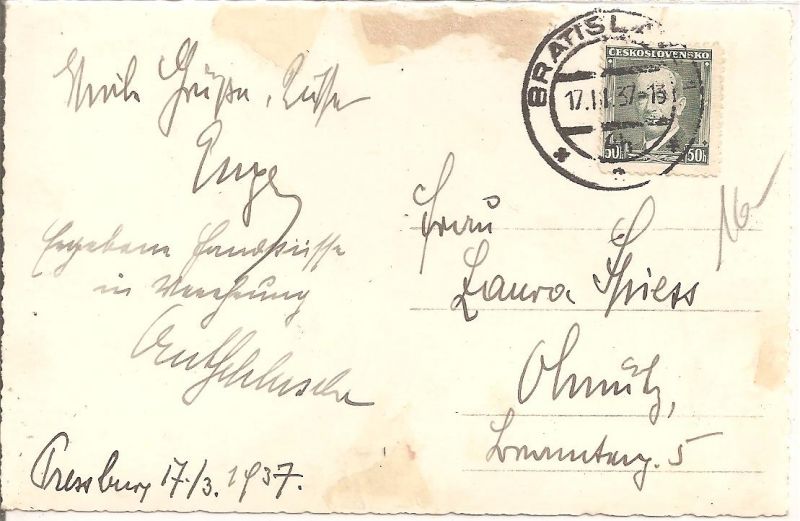 Viele Grüße, Küsse
Ergebene Handküsse
in Verehrung
Pressburg 17./3. 1937.
BRATISL
17.III.37-13
ČESKOSLOVENSKO
50h 50h
16-
Frau
Laura Spiess
Olmütz,
5